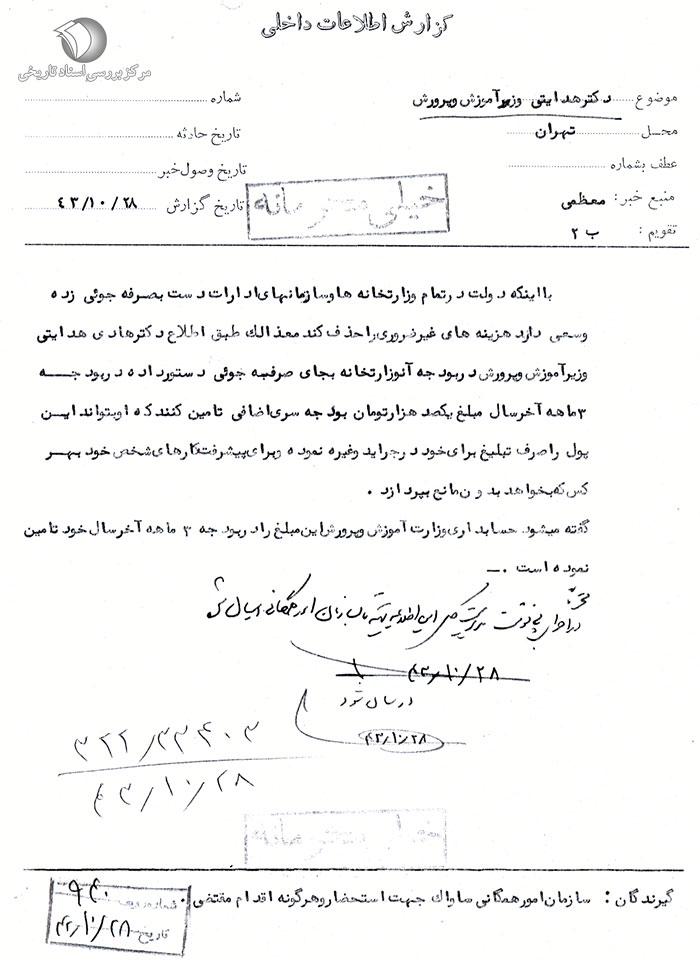 گزارش اطلاعات داخلی
مرکز بررسی اسناد تاریخی
موضوع دکتر هدایتی وزیر آموزش وپرورش
شماره
محل تهران
تاریخ حادثه
عطف بشماره
تاریخ وصول خبر
منبع خبر: معظمی
تاریخ گزارش ۴۳/۱۰/۲۸
تقویم: ب ۲
خیلی محرمانه
با اینکه دولت در تمام وزارتخانه ها وسازمانهای ادارات دست بصرفه جوئی زده
وسعی دارد هزینه های غیرفروری را حذف کند معذالک طبق اطلاع دکتر هادی هدایتی
وزیر آموزش وپرورش در بودجه آنوزارتخانه بجای صرفه جوئی دستور داده در بودجه
۳ ماهه آخر سال مبلغ یکصد هزار تومان بودجه سری اضافی تامین کنند که او بتواند این
پول را صرف تبلیغ برای خود در جراید وغیره نموده وبرای پیشرفت کارهای شخص خود بهر
کس که بخواهد بدون مانع بپردازد .
گفته میشود حسابداری وزارت آموزش وپرورش این مبلغ را در بودجه ۳ ماهه آخر سال خود تامین
نموده است . ــ
در اجرای پی نوشت این اطلاعیه
۴۳/۱۰/۲۸
ارسال شود
۴۳/۱۰/۲۸
۳۲۲/۳۳۴۰۳
۴۳/۱۰/۲۸
خیلی محرمانه
گیرندگان: سازمان امور همگانی ساواک جهت استحضار وهرگونه اقدام مقتضی .
شماره ردیف ۹۴۰
تاریخ ۴۳/۱۰/۲۸